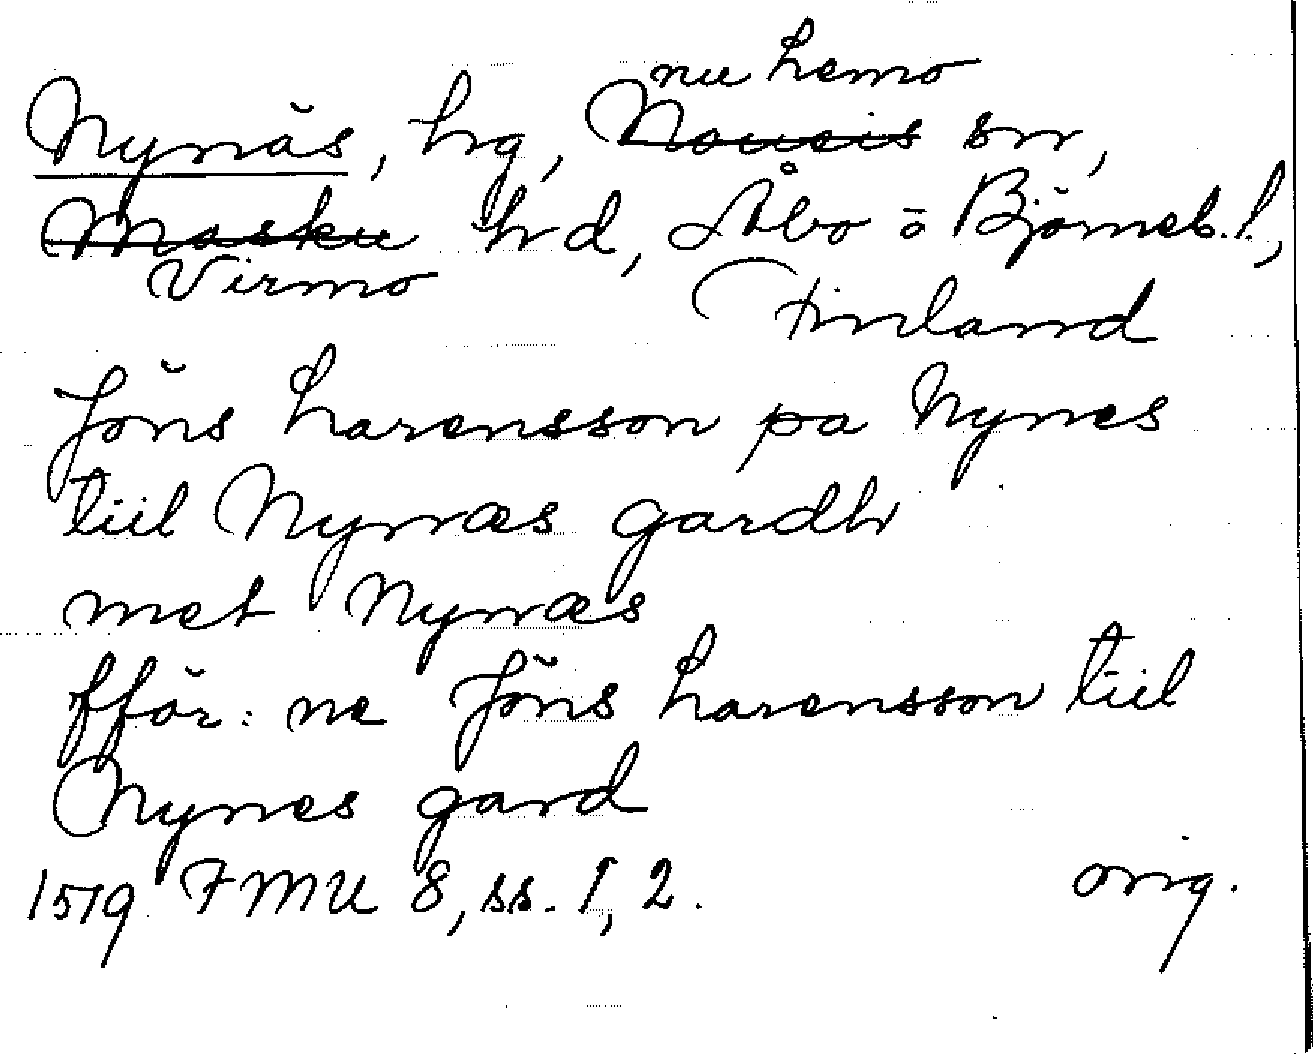 nu Lemo
Nynäs, hrg, Nousis sn,
Masku hd, Åbo o Björneb. l.,
Virmo
Finland
Jöns Larensson pa Nynes
tiil Nynæs gardh
met Nynæs
fför: ne Jöns Larensson tiil
Nynes gard
1519 FMU 8, ss. 1, 2. orig.